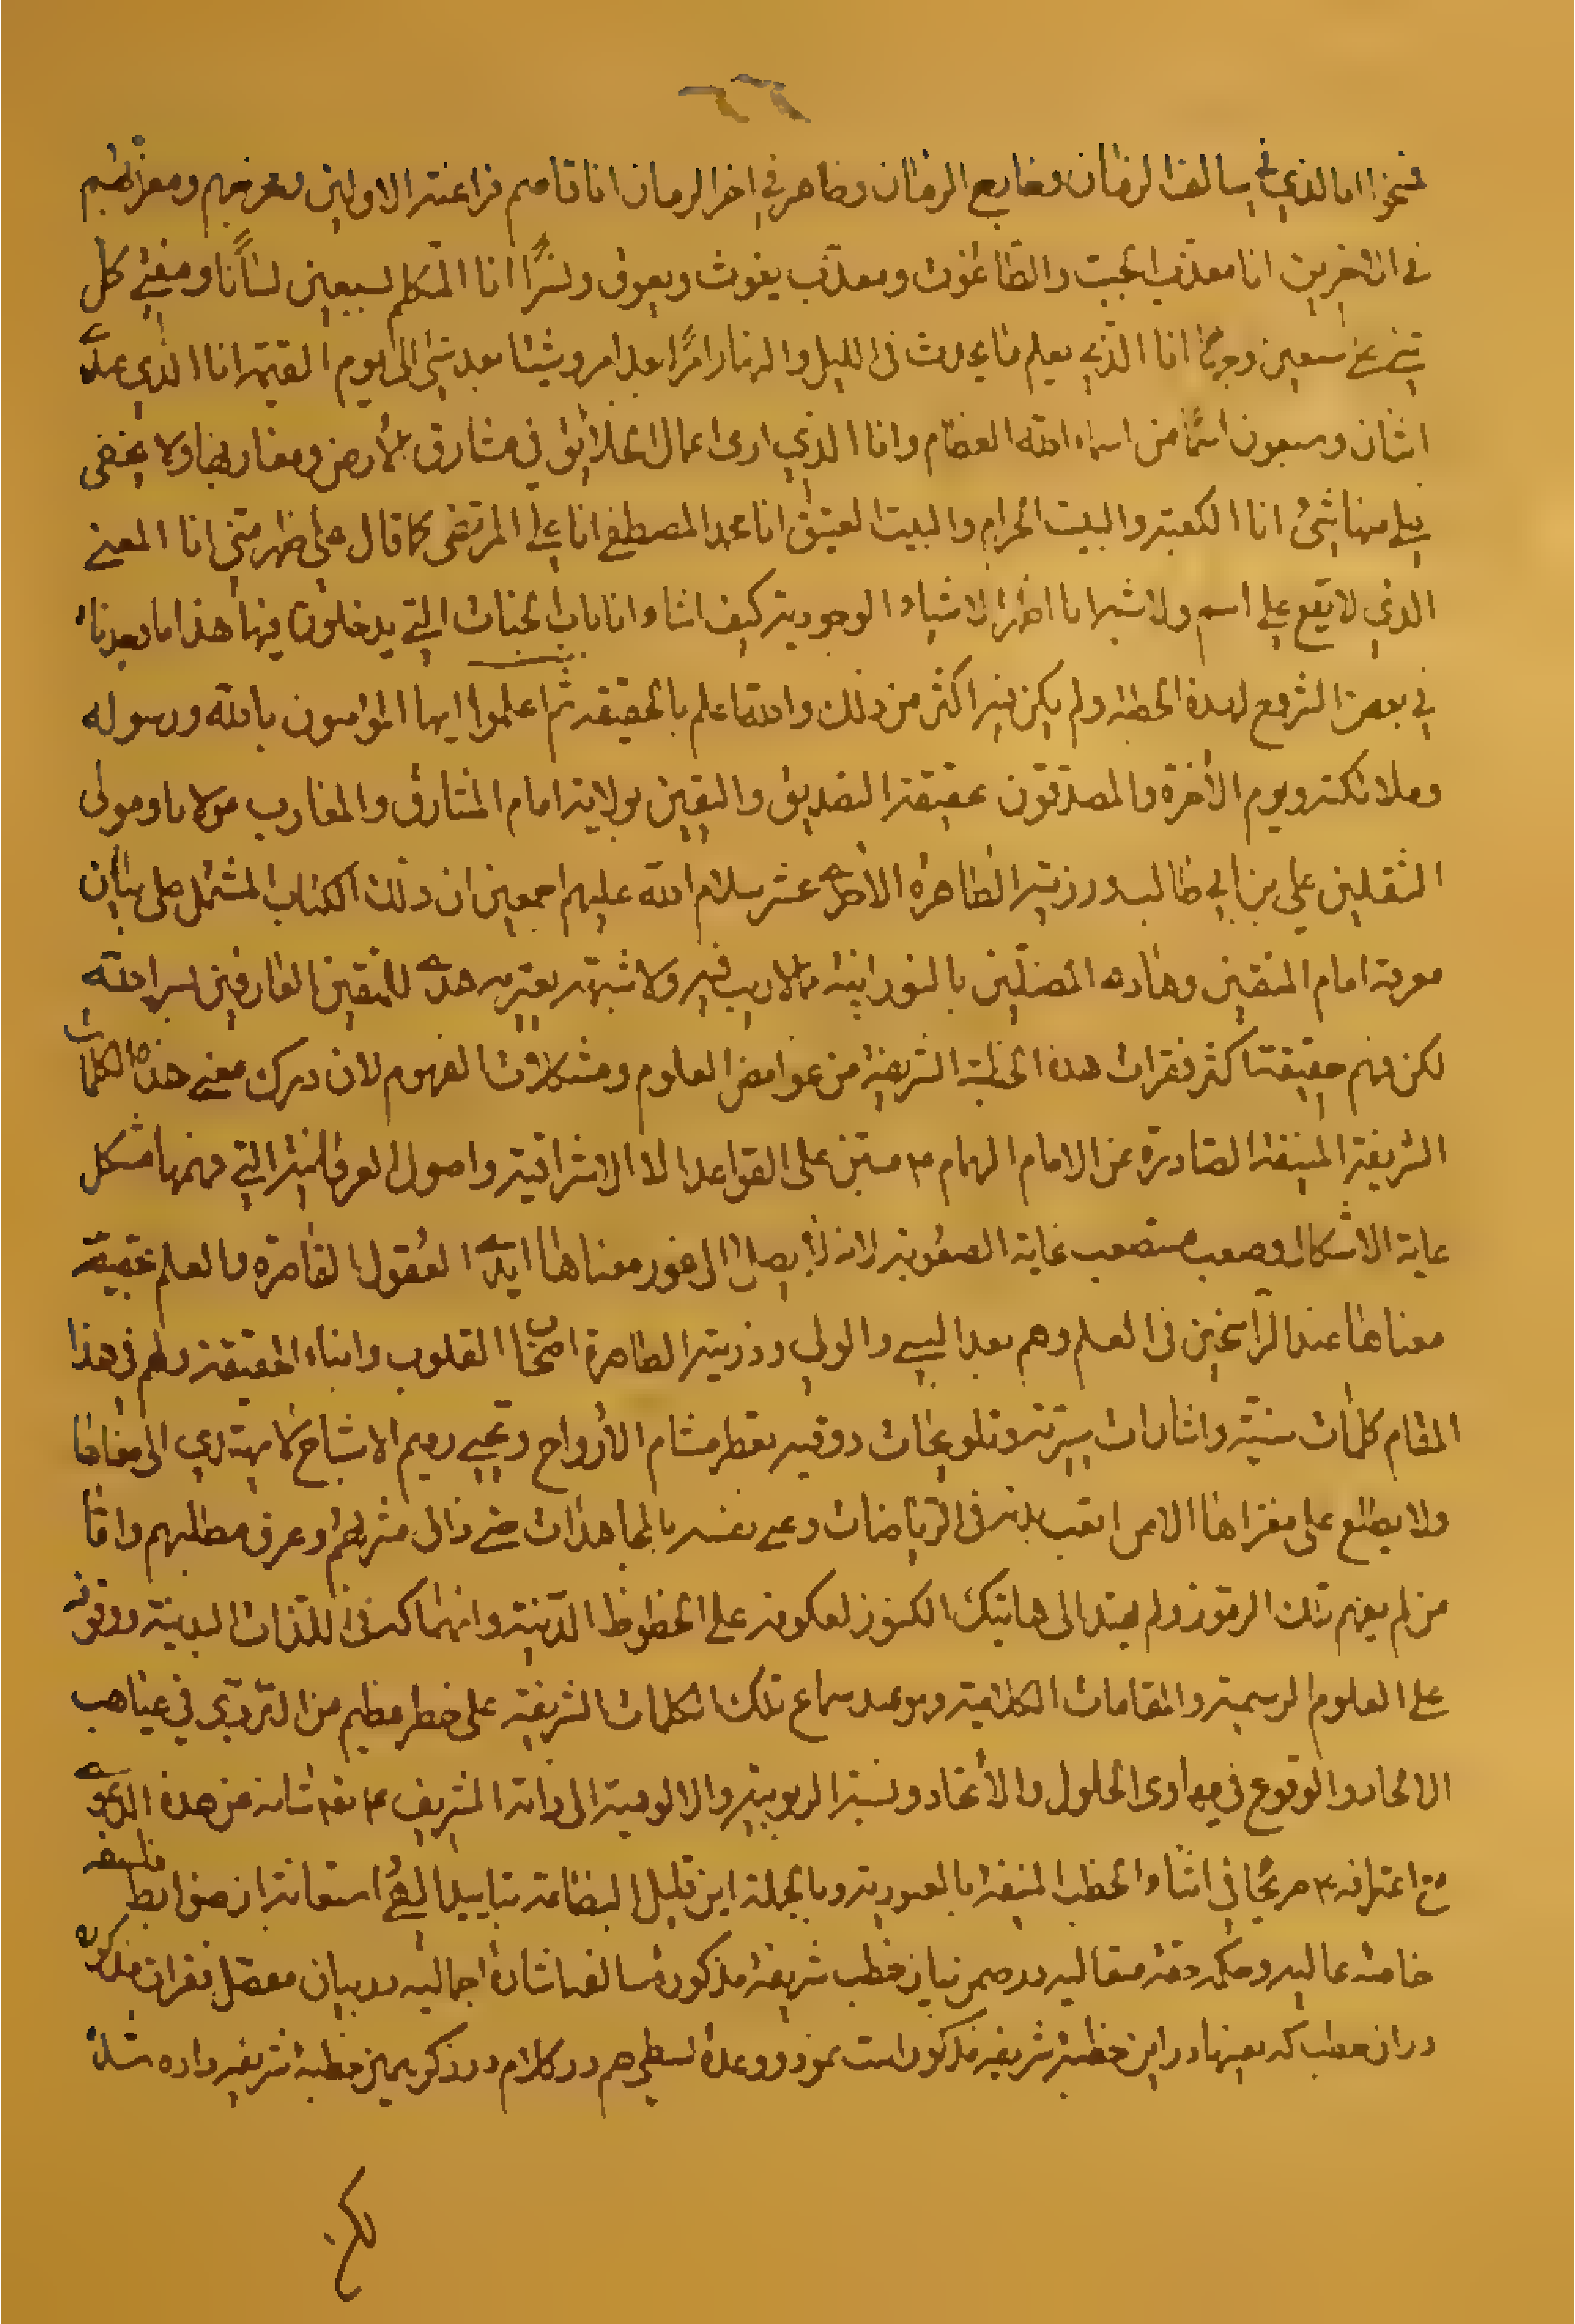 انا الذي في سالف الزمان وظاهر في اخر الزمان انا قاصم فراعنة الاولين ومخرجهم ومعذبهم
في الاخرين انا معذب الجبت والطاغوت ومعذب يغوث ويعوق ونسرًا انا المتكلم بسبعين لسانًا ومفتي كل
شيء على سبعين وجهًا انا الذي يعلم ما يحدث في الليل والنهار امرًا بعد امر وشيئا بعد شيء الى يوم القيمة انا الذي عنده
اثنان وسبعون اسمًا من اسماء الله العظام وانا الذي ارى اعمال الخلائق في مشارق الأرض ومغاربها ولا يخفى
علي منها شيئ انا الكعبة والبيت الحرام والبيت العتيق انا محمد المصطفى انا علي المرتضى كما قال علي ظهر مني انا المعنى
الذي لا يقع علي اسم ولا شبه انا اظهر الاشياء الوجودية كيف اشاء وانا باب الجنات التي يدخلون فيها هذا ما وجدنا
في بعض الشروح لهذة الخطبة ولم يكن فيه اكثر من ذلك والله اعلم بالحقيقه ثم اعلموا ايها المؤمنون بالله ورسوله
وملائكته ويوم الأخرة والمصدقون بحقيقة التصديق واليقين بولاية امام المشارق والمغارب مولانا ومولى
الثقلين علي بن ابي طالب وذريته الطاهرة الأحد عشر سلام الله عليهم اجمعين ان ذلك الكتاب المشتمل على بيان
معرفة امام المتقين وهاده المضلين بالنورانية مما لا ريب فيه ولا شبهة يعتريه هدى للمتقين العارفين لسر الله
لكن فهم حقيقة اكثر فقرات هذه الخطبة الشريفة من غوامض العلوم ومشكلات الفهوم لان درك معنى هذه الكلمات
الشريفة المنيفة الصادرة عن الامام الهمام ع مبتن على القواعد الا الاشراقية واصول العرفانية التي فهمها مشكل
غاية الاشكال وصعب مستصعب غاية الصعوبة لانه لا يصل الى غور معناها ايدى العقول القاصرة والعلم بحقيقة
معناها عند الراسخين في العلم وهم بعد النبي والولي وذريته الطاهرة اصحاب القلوب وابناء الحقيقة ولهم في هذا
المقام كلمات سنية واشارات سرية وتلويحات ذوقيه يعطر مشام الأرواح وتحيي رميم الاشباح لا يهتدي الى مغافا
ولا يطلع على مغزاها الا من اتعب بدنه في الرياضات وعى نفسه بالمجاهدات حتى ذاق مشربهم وعرف مطلبهم واما
من لم يفهم تلك الرموز ولم يهتد الى هاتيك الكنوز لعكوفه على الحظوظ الدنية وانهماكه في اللذات البدنية ووقوفه
على العلوم الرسمية والمقامات الكلامية وهو عند سماع تلك الكلمات الشريفة على خطر عظيم من التردى في غياهب
الالحاد والوقوع في مهاوى الحلول والأتحاد ونسبة الربوبية والالوهية الى ذاته الشريف ع تع شانه عن هذه الدعوى
مع اعترافه ع صريحًا في اثناء الخطب المنيفة بالعبودية وبالجملة اين قليل البضاعة بتاييد الهي استعانة از ضوابط فلسفه
خاصه عاليه وحكمه حقه متعاليه در ضمن بيان خطب شريفه مذكوره سالفه اشاره اجماليه در بيان معضل فقرات مذكوره
در ان خطب كه بعينها در اين خطبه شريفه مذكور است نمود ووعده بسطى هم در كلام در ذكر همين خطبه شريفه داده شد